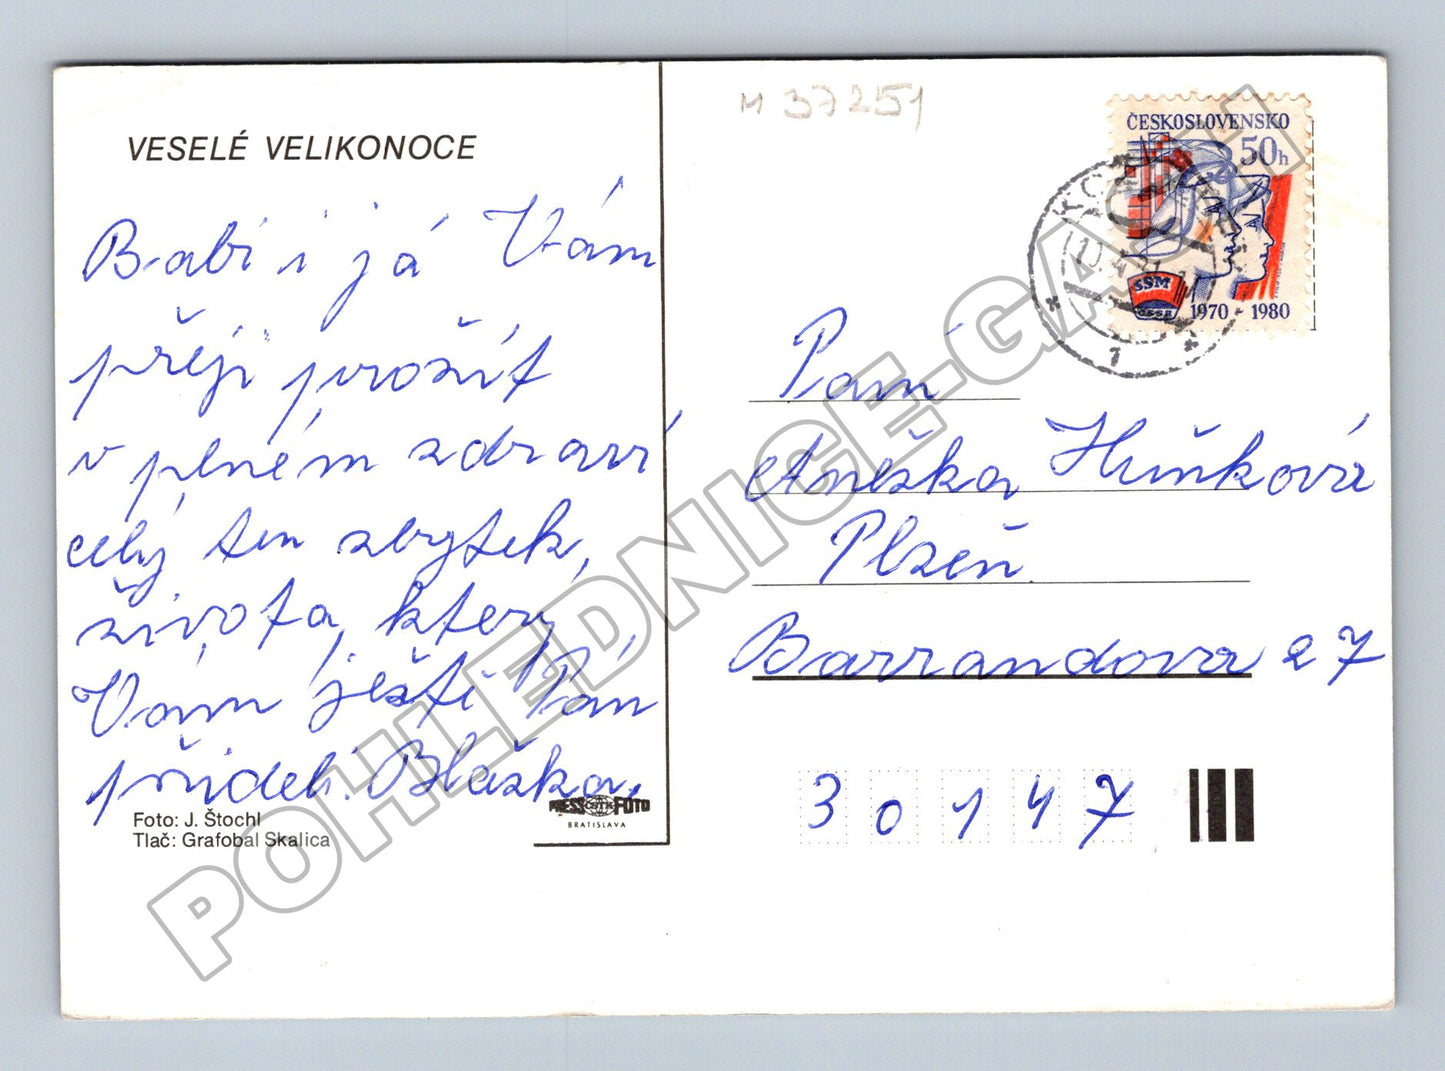 VESELÉ VELIKONOCE
Babi i já Vám
přeji prožít
v plném zdraví
celý ten zbytek,
života, který
Vám ještě Pán
přidelí. Blažka.
Foto: J. Štochl
Tlač: Grafobal Skalica
PRESS ČSTK FOTO
BRATISLAVA
M 37251
ČESKOSLOVENSKO
50h
SSM
ČSSR
1970 - 1980
1
Paní
Anežka Huňková
Plzeň
Barrandova 27
30147
POHLEDNICE-GALERIE.CZ